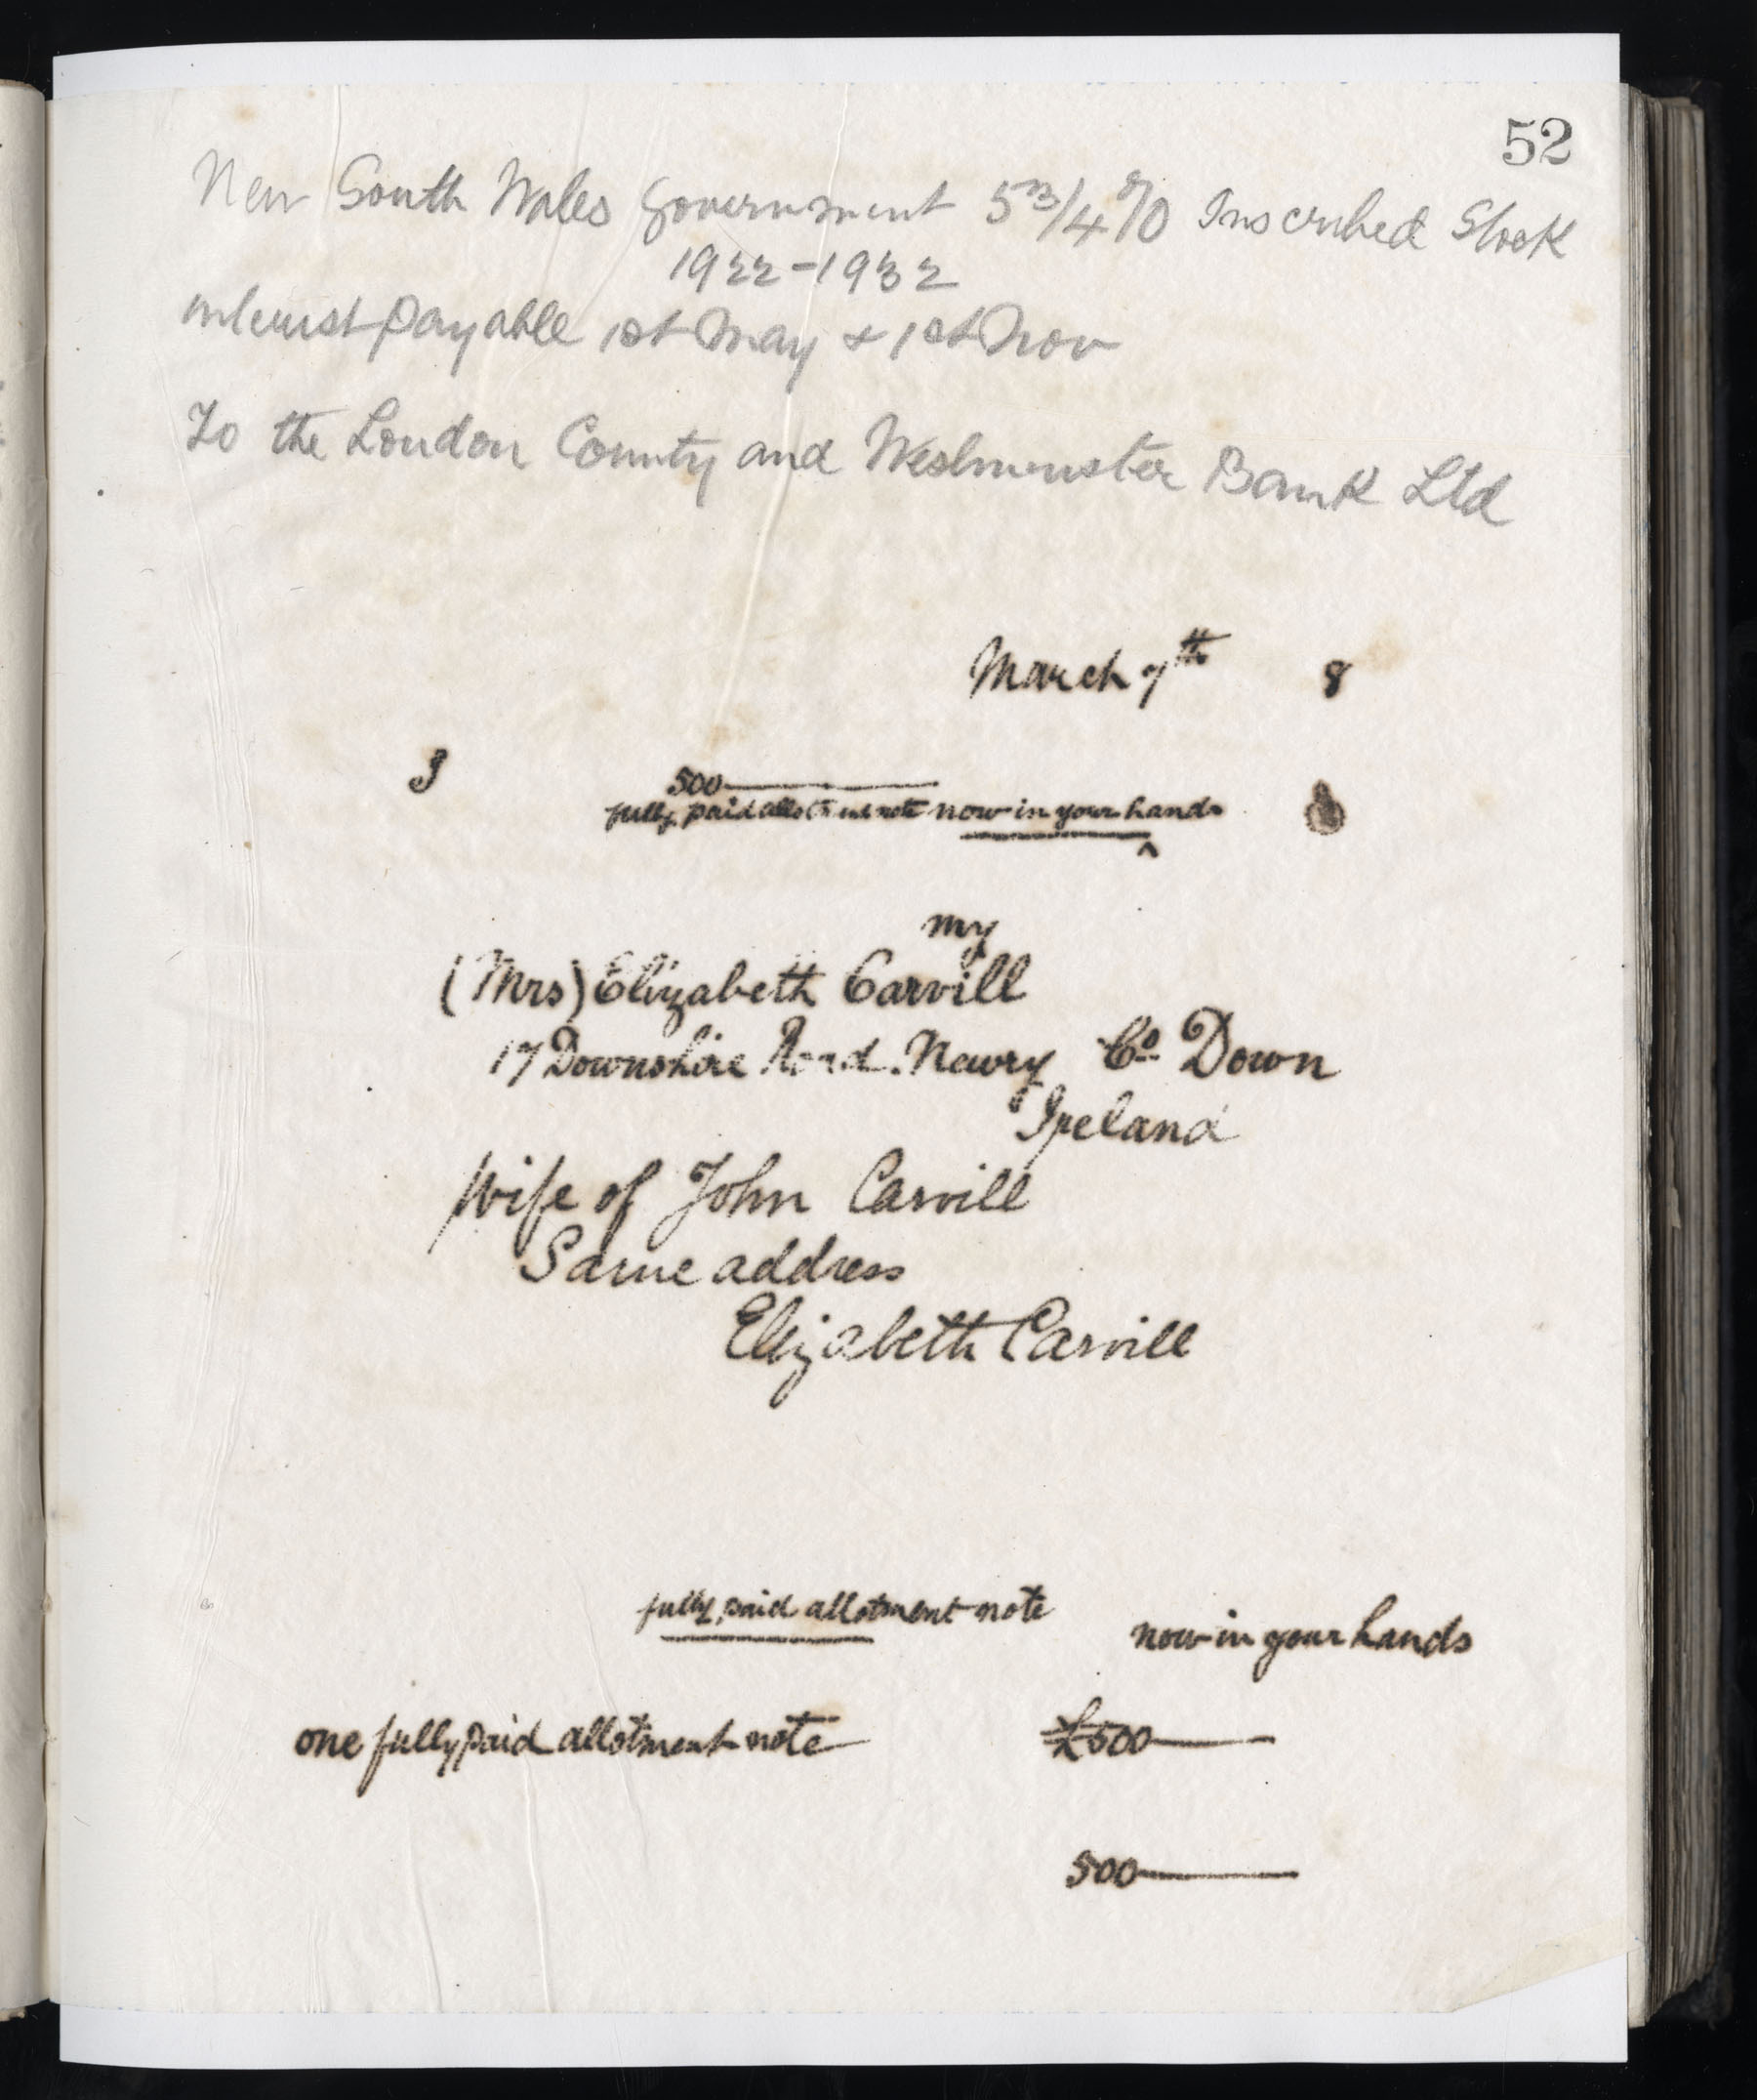 52
New South Wales Government 5 3/4 % Inscribed Stock
1922-1932
interest payable 1st May & 1st Nov
To the London County and Westminster Bank Ltd
March 7th 8
I 500
fully paid allotment note now in your hands
my
(Mrs) Elizabeth Carvill
17 Downshire Road. Newry Co Down
Ireland
Wife of John Carvill
Same address
Elizabeth Carvill
fully paid allotment note
now in your hands
one fully paid allotment note £500
500